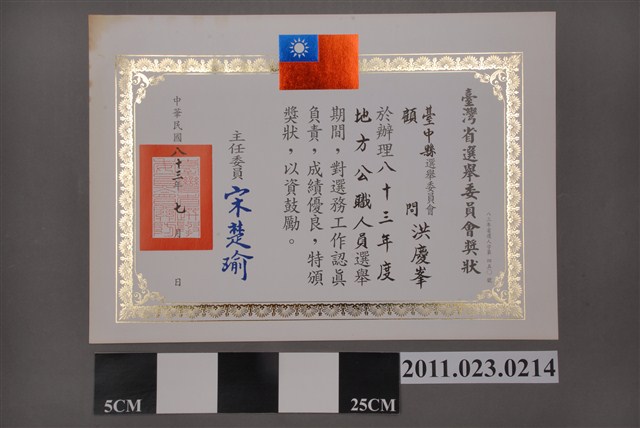 臺灣省選舉委員會獎狀
臺中縣選舉委員會
顧 問 洪慶峯
於辦理八十三年度
地方公職人員選舉
期間，對選務工作認眞
負責，成績優良，特頒
獎狀，以資鼓勵。
主任委員 宋楚瑜
中華民國八十三年七月 日
5CM
25CM
2011.023.0214